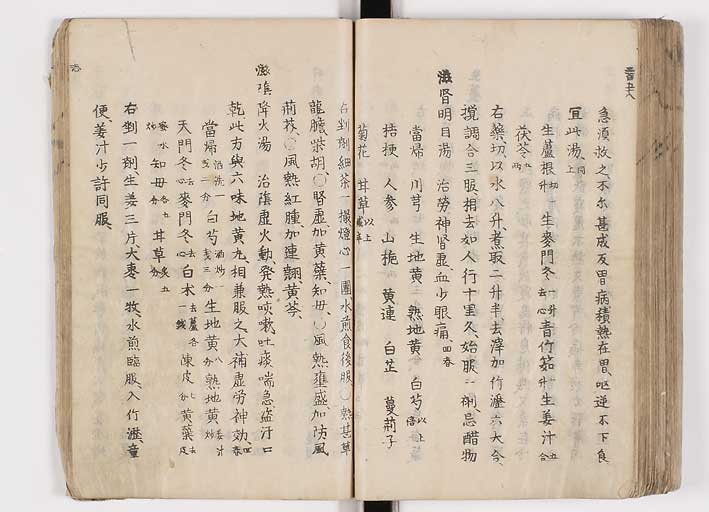 急須救之不尔甚成反胃病積熱在胃呕逆不下食
宜此湯同上
生蘆根切一升生麥門冬一升去心青竹茹升生姜汁五合
茯苓五兩
右藥切以水八升煮取二升半去滓加竹瀝六大合
攪調合三服相去如人行十里久始服一剤忌醋物
滋腎明目湯 治勞神腎虚血少眼痛四春
當帰 川芎 生地黄 熟地黄 白芍以上
桔梗 人参 山梔 黄連 白芷 蔓荊子
菊花 甘草以上
右剉剤細茶一撮燈心一團水煎食後服〇熱甚草
龍膽柴胡〇腎虚加黄蘗知母〇風熱壅盛加防風
荊芥〇風熱紅腫加連翹黄芩
滋陰降火湯 治陰虚火動発熱咳嗽吐痰喘急盗汗口
乾此方與六味地黄丸相兼服之大補虚勞神効四春
當帰酒洗一 白芍酒炒 生地黄八分熟地黄姜汁炒
天門冬去心麥門冬去心白朮去蘆各一戔陳皮七分黄蘗去皮
蜜水炒知母各五分甘草炙五分
右剉一剤生姜三片大枣一枚水煎臨服入竹瀝童
便姜汁少許同服